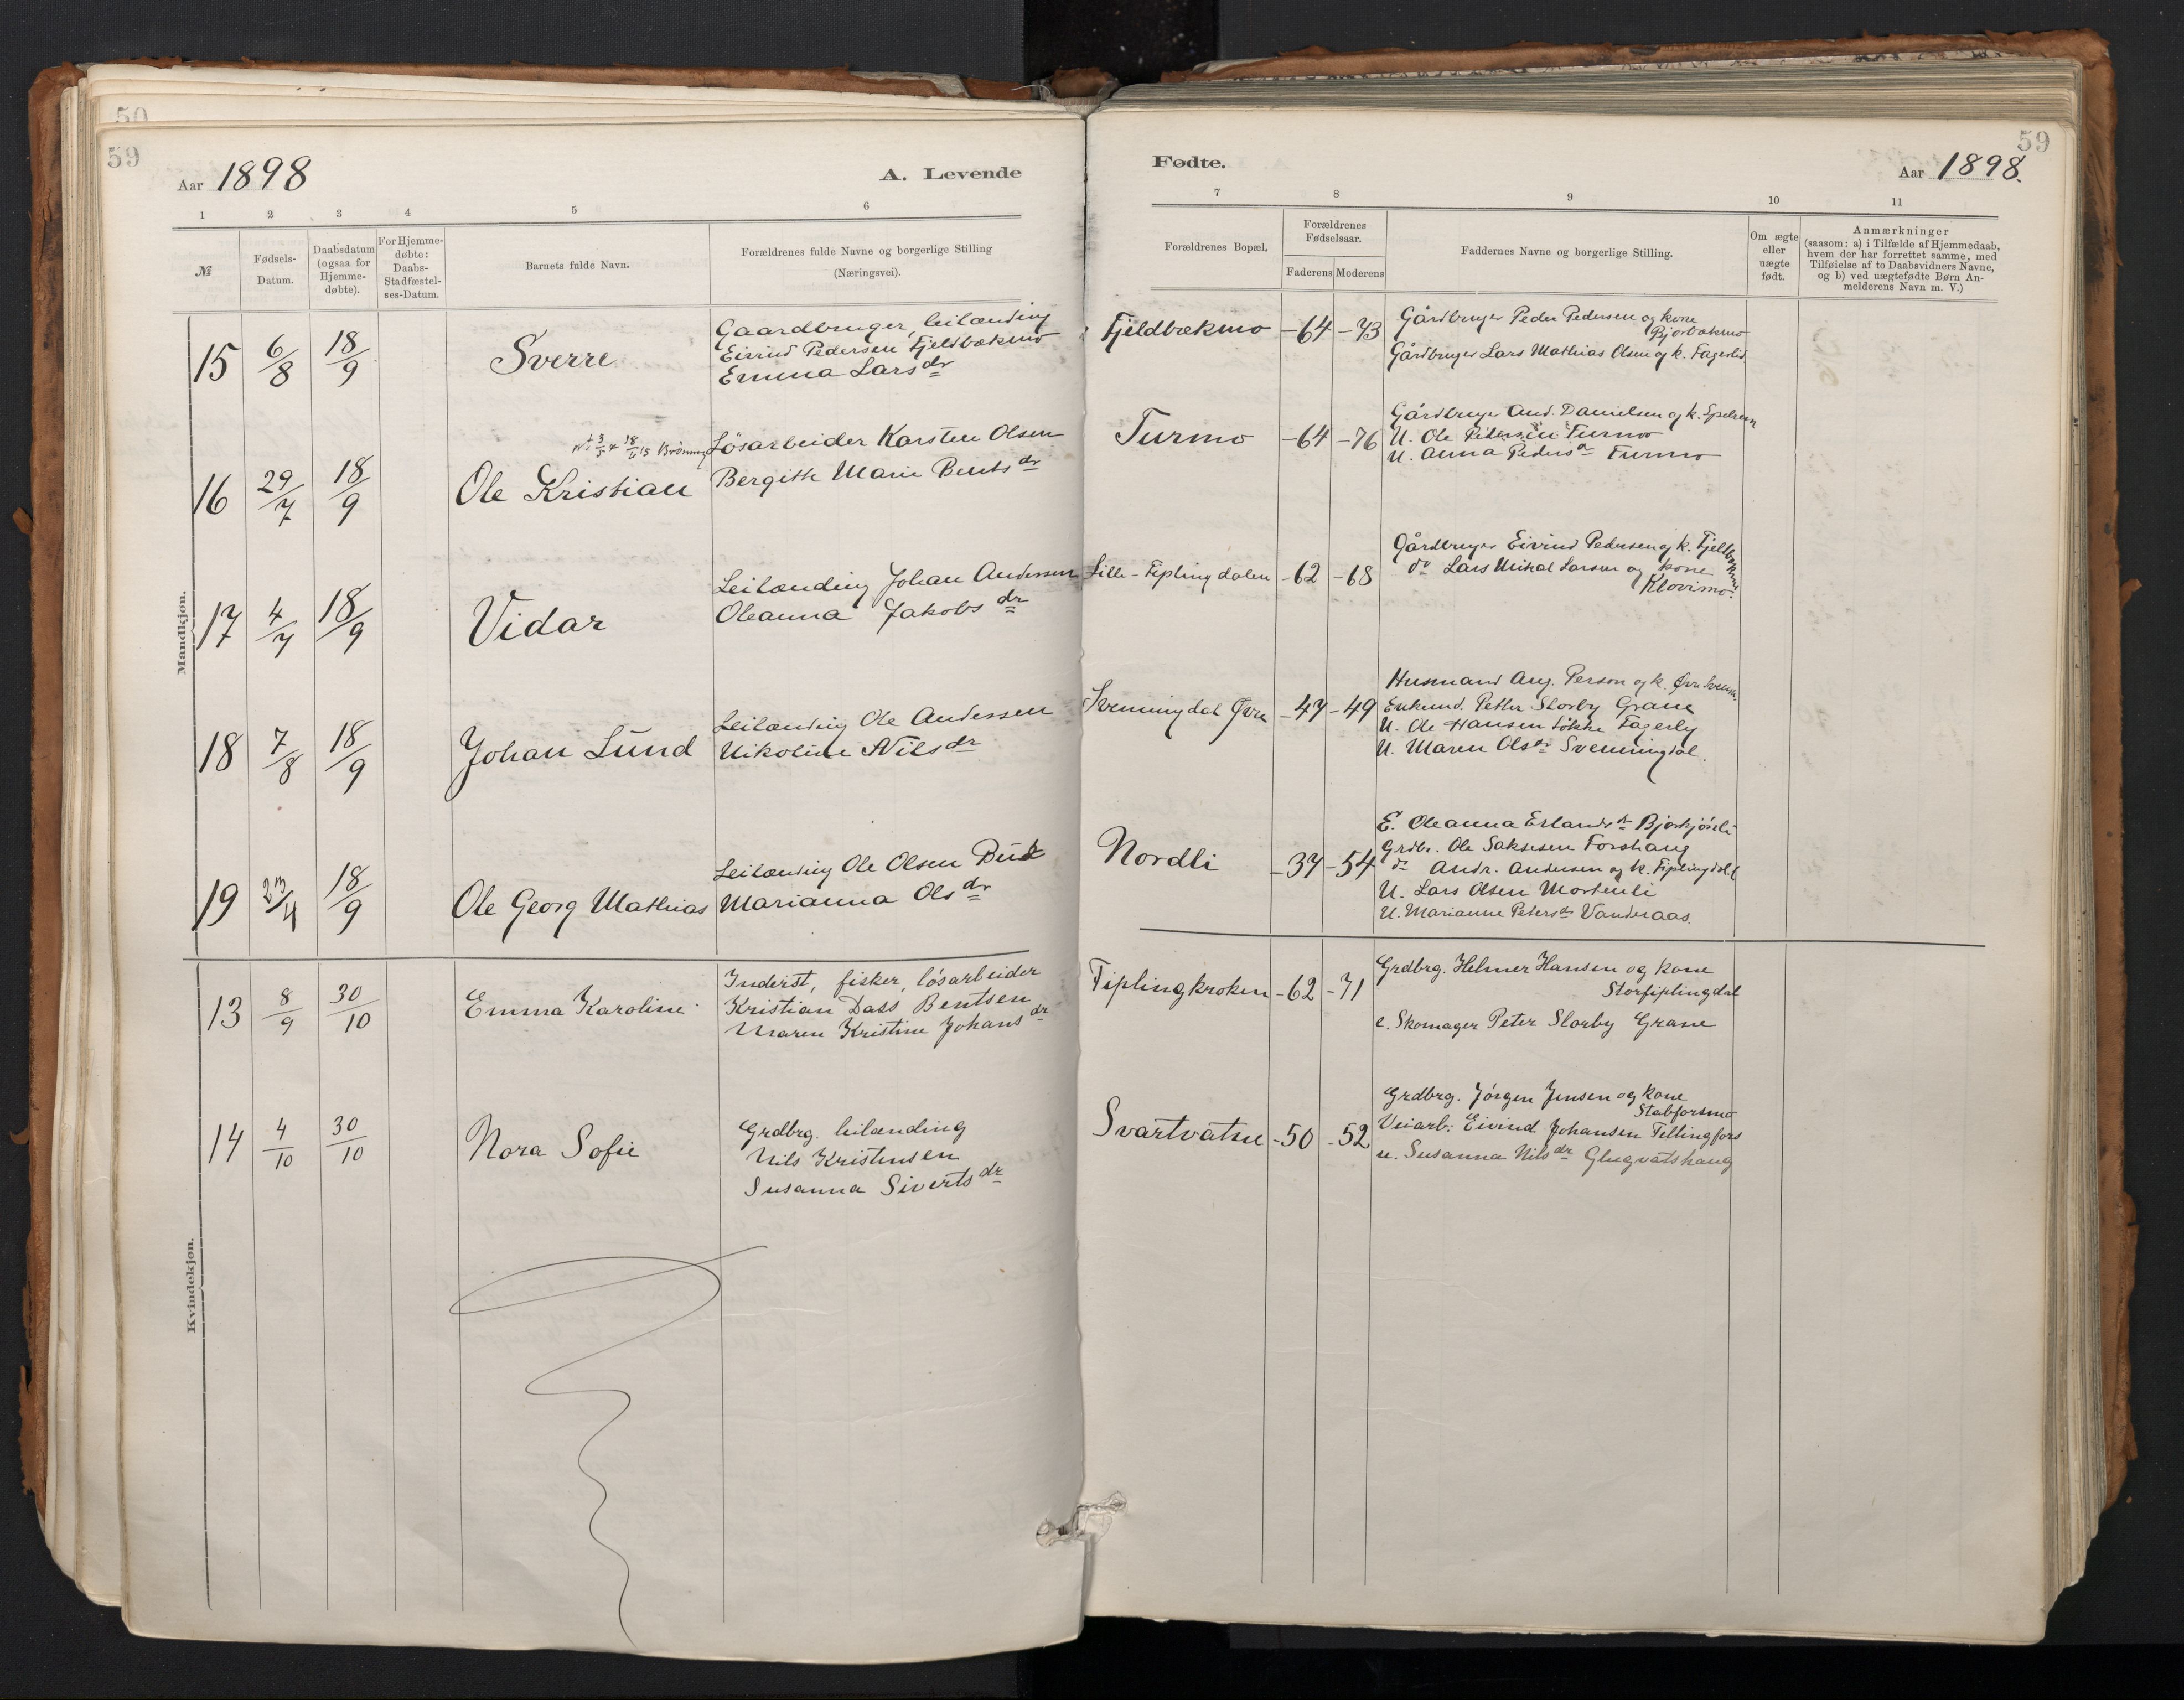 50
59
59
Aar 1898
A. Levende
Fødte.
Aar 1898.
1 2 3 4 5 6 7 8 9 10 11
№
Fødsels-Datum.
Daabsdatum (ogsaa for Hjemme-døbte).
For Hjemme-døbte: Daabs-Stadfæstel-ses-Datum.
Barnets fulde Navn.
Forældrenes fulde Navne og borgerlige Stilling
(Næringsvei).
Forældrenes Bopæl.
Forældrenes Fødselsaar.
Faderens Moderens
Faddernes Navne og borgerlige Stilling.
Om ægte eller uægte født.
Anmærkninger
(saasom: a) i Tilfælde af Hjemmedaab,
hvem der har forrettet samme, med
Tilføielse af to Daabsvidners Navne,
og b) ved uægtefødte Børn An-
melderens Navn m. V.)
Mandkjøn.
15 6/8 18/9 Sverre
Gaardbruger, leilænding
Eivind Pedersen Fjeldbækmo
Emma Larsdr
Fjeldbækmo -64 -73
Gårdbruger Peder Pedersen og kone
Bjorbækmo
Gårdbruger Lars Mathias Olsen og k. Fagerlid
16 29/7 18/9 Ole Kristian
Løsarbeider Karsten Olsen
Bergitte Marie Bentsdr
Turmo -64 -76
Gårdbruger And. Danielsen og k.
U. Ole Pedersen Turmo
U. Anna Pedersdr Turmo
17 4/7 18/9 Vidar
Leilænding Johan Andersen
Oleanna Jakobsdr
Lille-Fiplingdalen -62 -68
Gårdbruger Eivind Pedersen og k. Fjeldbækmo
do Lars Mikal Larsen og kone
Klovimo
18 7/8 18/9 Johan Lund
Leilænding Ole Andersen
Nikoline Nilsdr
Svenningdal Øvre -47 -49
Husmand Aug. Person og k. Øvre
Enkemd. Petter Storby Grane
U. Ole Hansen Løkke Fagerly
U. Maren Olsdr Svenningdal.
19 23/4 18/9 Ole Georg Mathias
Leilænding Ole Olsen
Marianna Olsdr
Nordli -37 -54
E. Oleanna Erlandsdr
Grdbr. Ole Saksesen Forshaug
do Andr. Andersen og k. Fiplingdal
U. Lars Olsen Mortenli
U. Marianne Petersdr Vanderaas.
Kvindekjøn.
13 8/9 30/10 Emma Karoline
Inderst, fisker, løsarbeider
Kristian Dass Bentsen
Maren Kristine Johansdr
Fiplingkroken -62 -71
Grdbrg. Helmer Hansen og kone
Storfiplingdal
e. Skomager Peter Storby Grane
14 4/10 30/10 Nora Sofie
Grdbrg. leilænding
Nils Kristensen
Susanna Sivertsdr
Svartvatne -50 -52
Grdbrg. Jørgen Jensen og kone
Stabforsmo
Veiarb: Eivind Johansen Fellingfors
u. Susanna Nilsdr Glugvatshaug